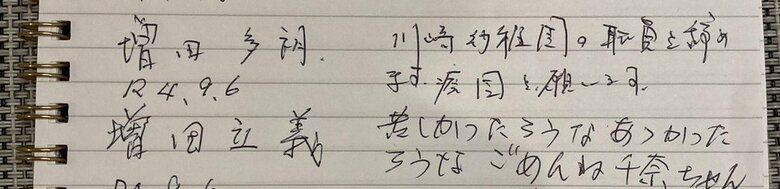 増田多朗.
川崎幼稚園の職員を辞め
R4.9.6
ます.廃園を願います.
増田立義
苦しかったろうなあつかった
ろうなごめんね千奈ちゃん